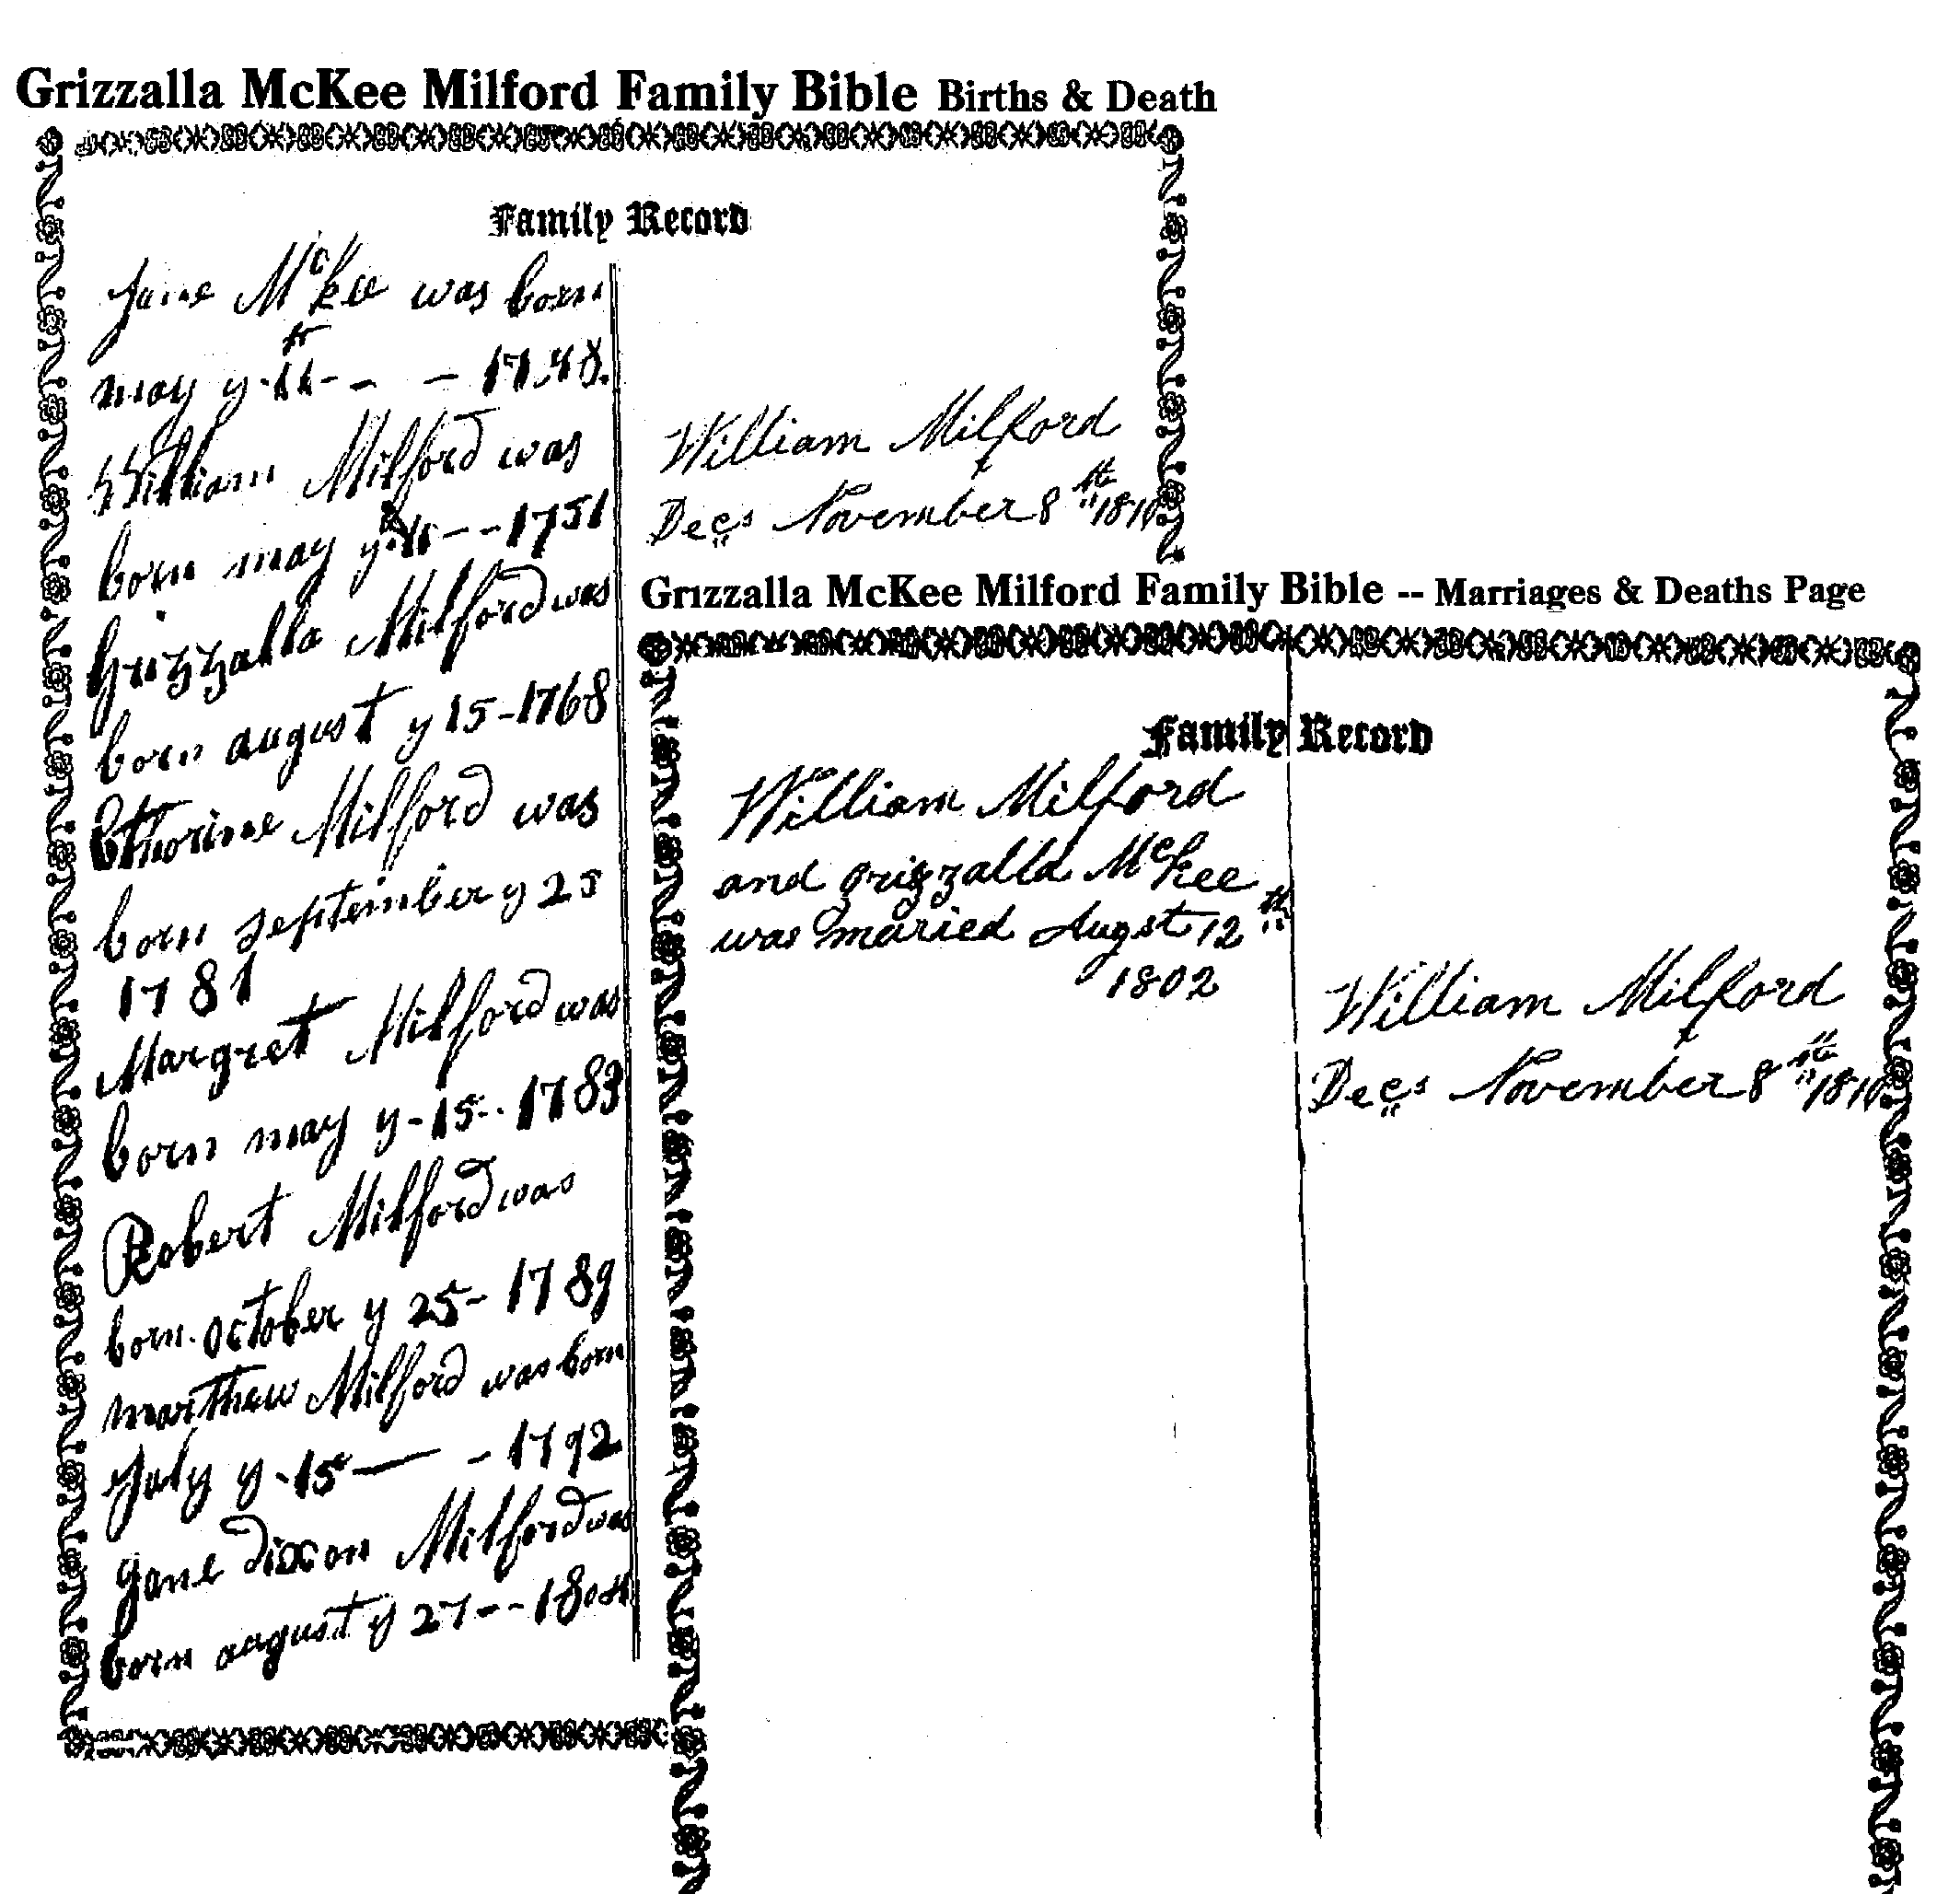 Grizzalla McKee Milford Family Bible Births & Death
Family Record
Jane McKee was born
may y 11 - - 1748.
William Milford was
born may y 11 - - 1751
Grizzalla Milford was
born august y 15 - 1768
Milford was
born september y 25
1781
Margret Milford was
born may y - 15 - 1783
Robert Milford was
born october y 25 - 1789
marthew Milford was born
July y - 15 - - 1792
Jane dixon Milford was
born august y 27 - - 1804
William Milford
Decs November 8th 1810
Grizzalla McKee Milford Family Bible -- Marriages & Deaths Page
Family Record
William Milford
and grizzalla McKee
was maried Augst 12th
1802
William Milford
Decs November 8th 1810